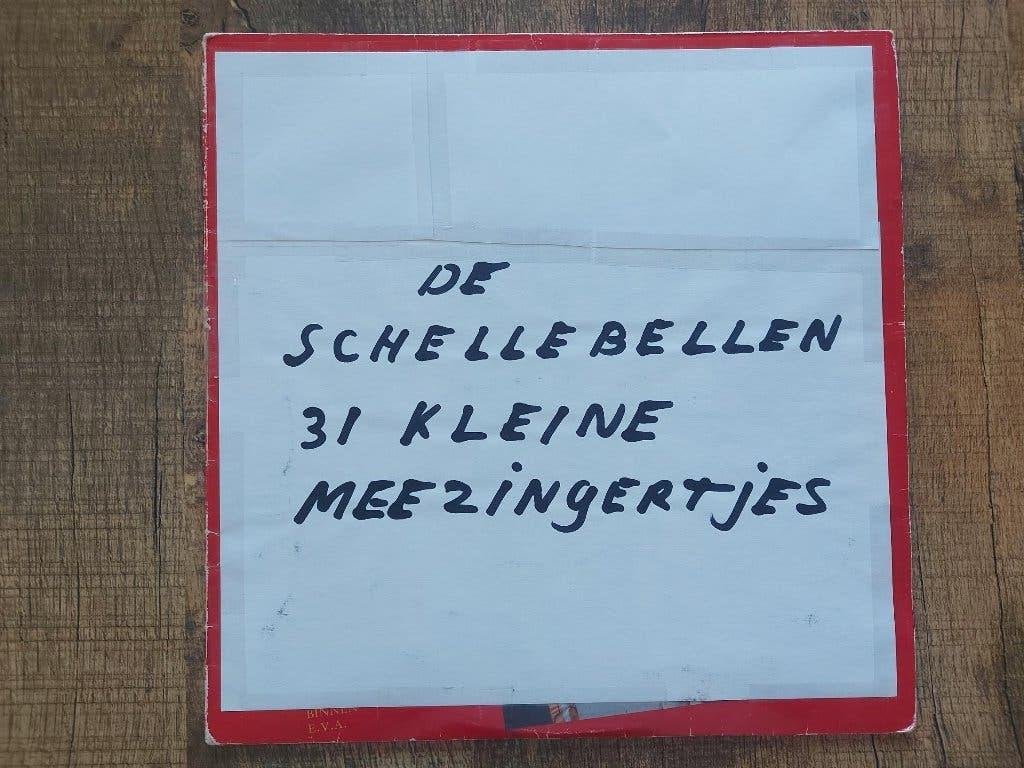 DE
SCHELLEBELLEN
31 KLEINE
MEEZiNgERTjES
BINNEN
E.V.A.